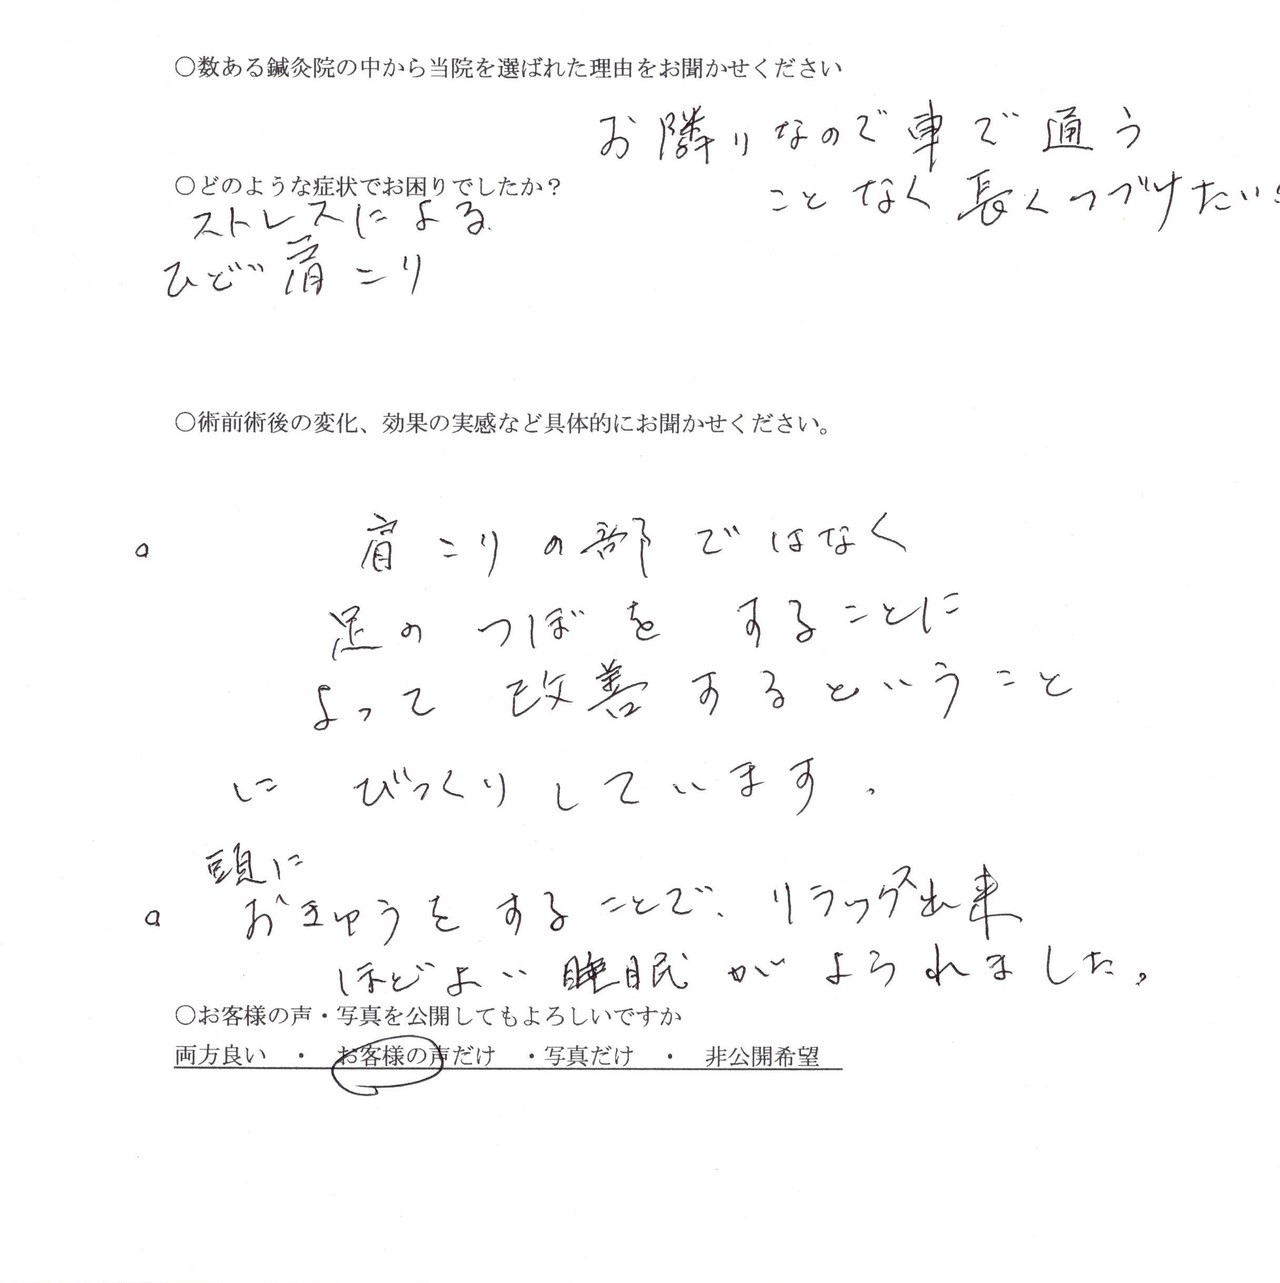 ○数ある鍼灸院の中から当院を選ばれた理由をお聞かせください
お隣りなので車で通う
ことなく長くつづけたい
○どのような症状でお困りでしたか？
ストレスによる
ひどい肩こり
○術前術後の変化、効果の実感など具体的にお聞かせください。
肩こりの部ではなく
足のつぼをすることに
よって改善するということ
にびっくりしています。
頭に
おきゅうをすることで、リラックス出来
ほどよい睡眠がようれました。
○お客様の声・写真を公開してもよろしいですか
両方良い ・ お客様の声だけ ・写真だけ ・ 非公開希望